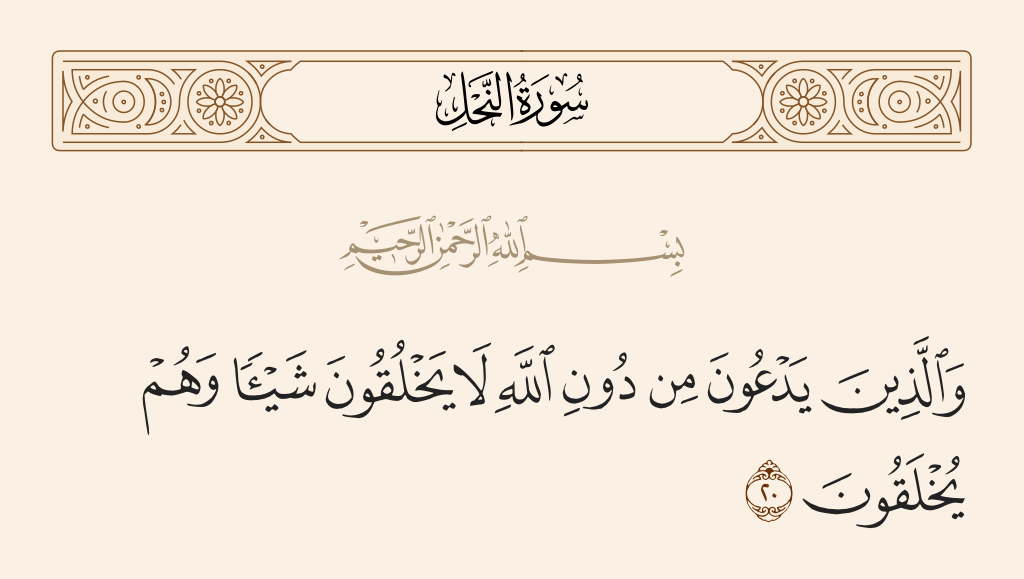 سُورَةُ النَّحْلِ
بِسْمِ ٱللَّهِ ٱلرَّحْمَٰنِ ٱلرَّحِيمِ
وَٱلَّذِينَ يَدْعُونَ مِن دُونِ ٱللَّهِ لَا يَخْلُقُونَ شَيْـًٔا وَهُمْ
يُخْلَقُونَ ٢٠